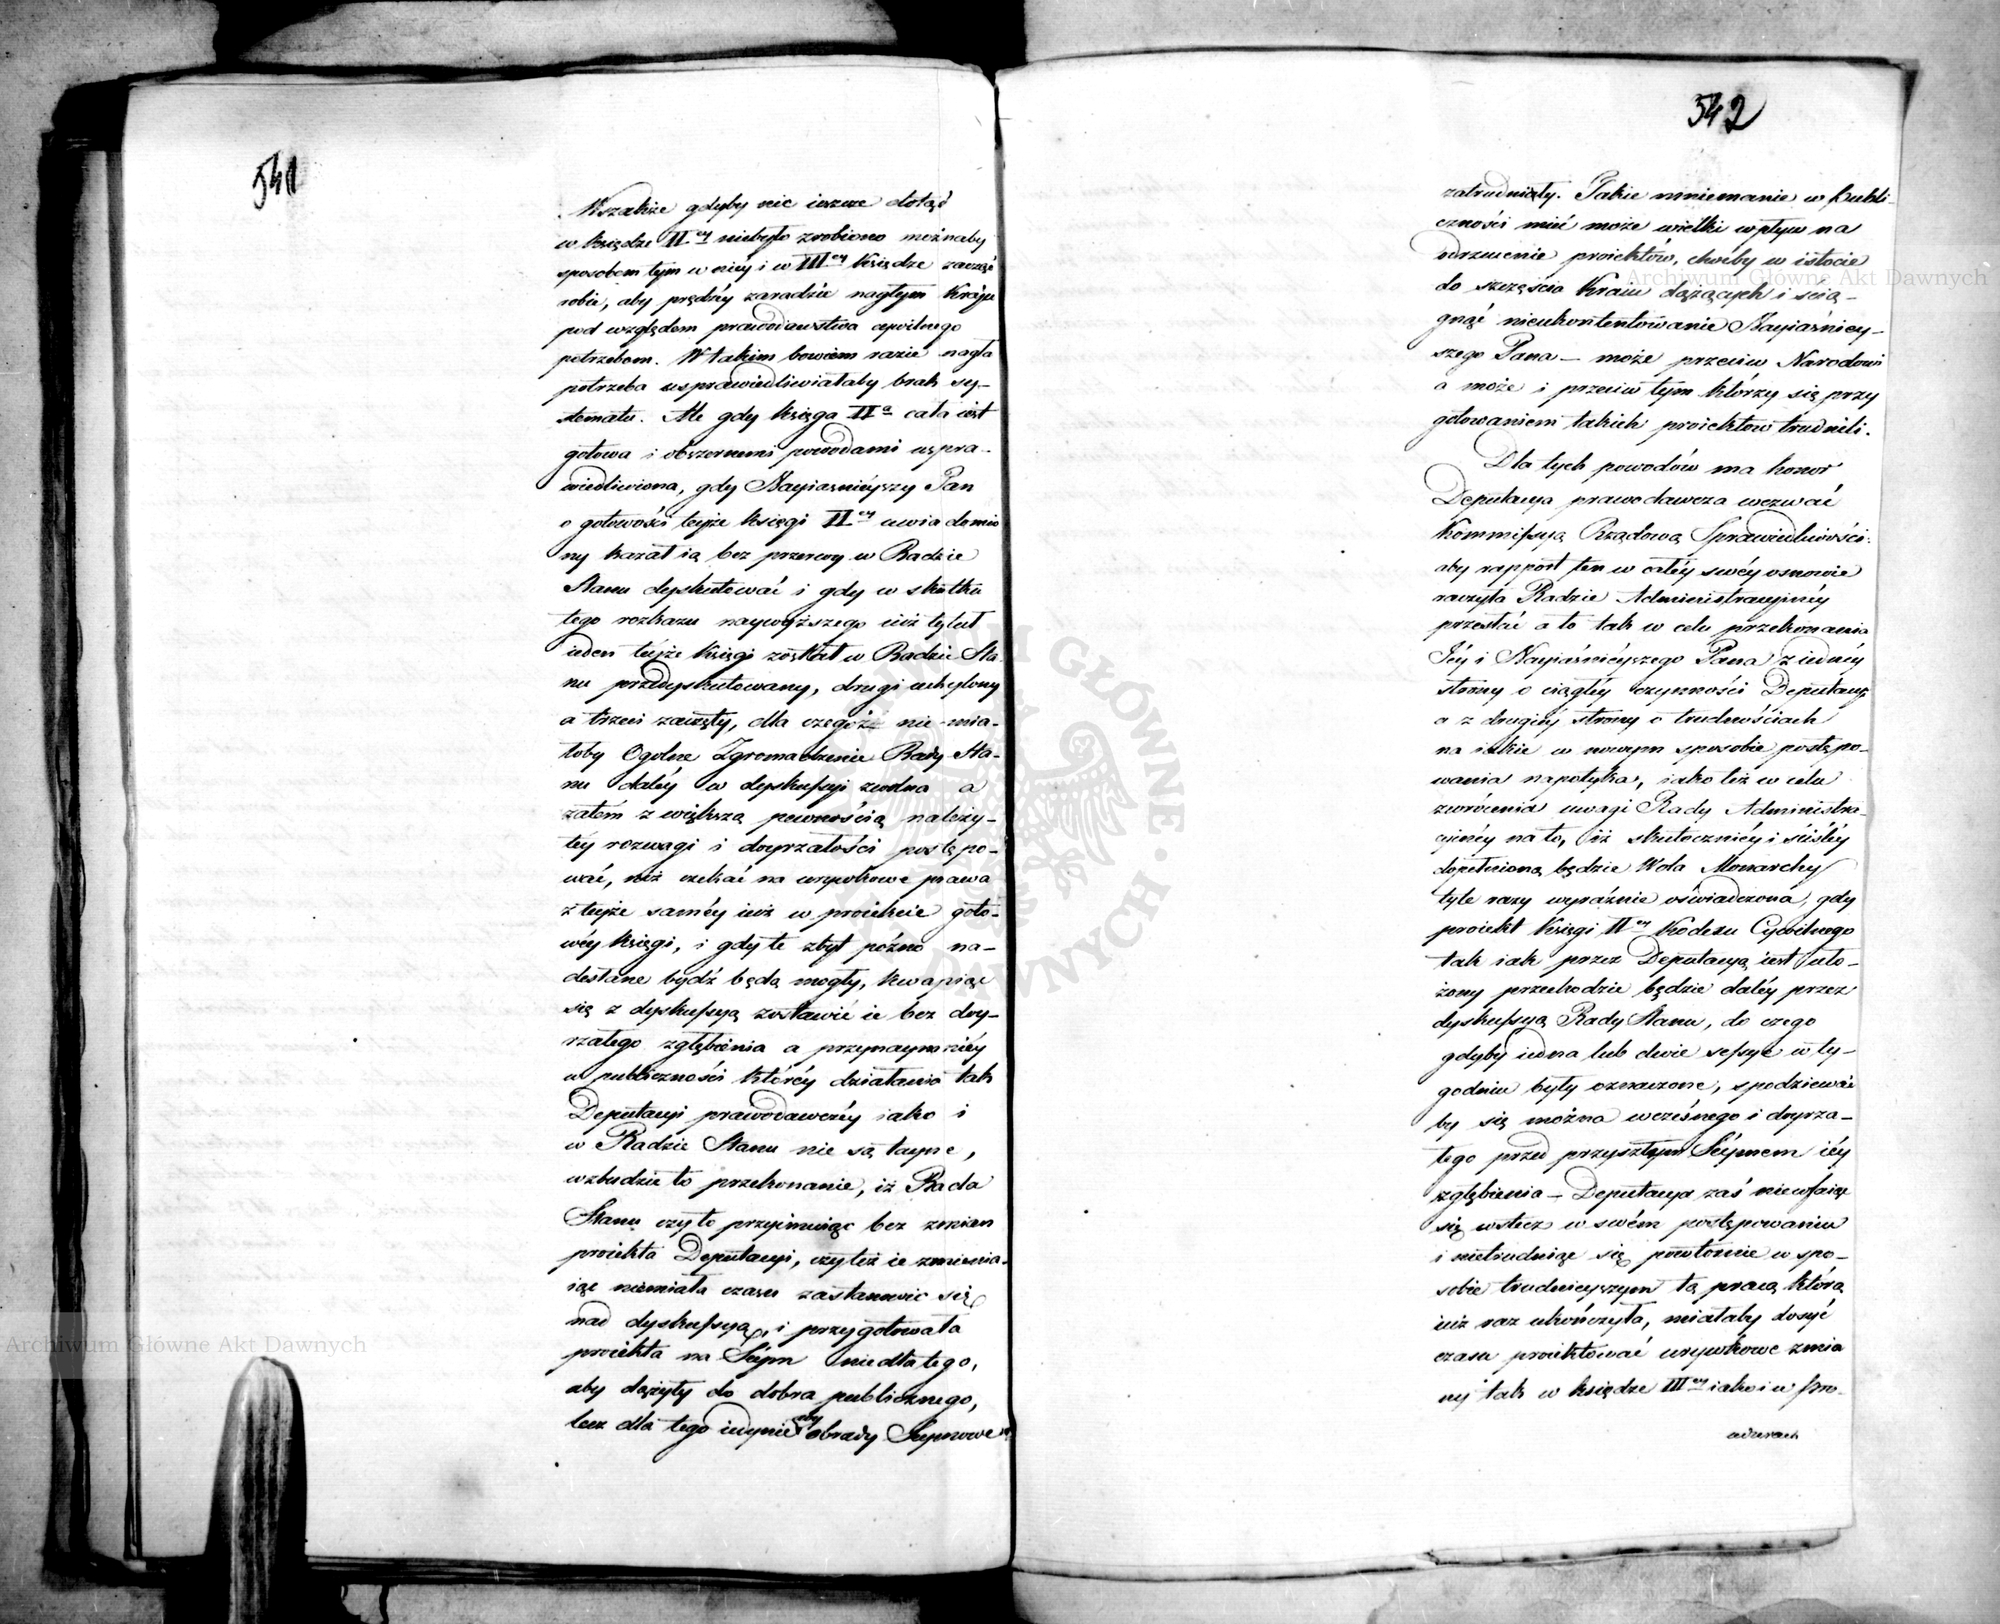 541
Wszakże gdyby nic ieszcze dotąd
w księdze II<sup>ey</sup> niebyło zrobiono możnaby
sposobem tym w niéy i w III<sup>ey</sup> Księdze zacząć
robić, aby prędzéy zaradzić nagłym Kraju
pod względem prawodawstwa cywilnego
potrzebom. W takim bowiem razie nagła
potrzeba usprawiedliwiałaby brak sy-
stematu. Ale gdy Księga II<sup>a</sup> cała iest
gotowa i obszernemi powodami uspra-
wiedliwiona, gdy Nayiaśnieyszy Pan
o gotowości teyże księgi II<sup>ey</sup> uwiadomio
ny kazał ią bez przerwy w Radzie
Stanu dyskutować i gdy w skutku
tego rozkazu naywyższego iuż tytuł
ieden teyże Księgi został w Radzie Sta
nu przedyskutowany, drugi uchylony
a trzeci zaczęty, dla czegoż nie mia-
łoby Ogolne Zgromadzenie Rady Sta-
nu daléy w dyskussyi zwolna a
zatém z większą pewnością należy-
téy rozwagi i doyrzałości postępo-
wać, niż czekać na urywkowe prawa
z teyże saméy iuż w proiekcie goto-
wéy księgi, i gdy te zbyt pózno na-
desłane bydź będą mogły, kwapiąc
się z dyskussyą zostawić ie bez doy-
rzałego zgłębienia a przynaymniéy
w publiczności któréy działania tak
Deputacyi prawodawczéy iako i
w Radzie Stanu nie są tayne,
wzbudzić to przekonanie, iż Rada
Stanu czy to przyimuiąc bez zmian
proiekta Deputacyi, czy też ie zmienia-
iąc niemiała czasu zastanowic się
nad dyskussyą, i przygotowała
proiekta na Séym nie dla tego,
aby dążyły do dobra publicznego,
lecz dla tego iedynie aby obrady Seymowe
542
zatrudniały. Takie mniemanie w Publi-
czności mieć może wielki wpływ na
odrzucenie proiektów, choćby w istocie
do szczęścia Kraiu dążących i scią-
gnąć nieukontentowanie Nayiaśniey-
szego Pana — może przeciw Narodowi
a może i przeciw tym którzy się przy
gotowaniem takich proiektów trudnili.
Dla tych powodów ma honor
Deputacya prawodawcza wezwać
Kommissyą Rządową Sprawiedliwości
aby rapport ten w całéy swéy osnowie
raczyła Radzie Administracyinéy
przesłać a to tak w celu przekonania
Iéy i Nayiaśnieyszego Pana z iednéy
strony o ciągłéy czynności Deputacyi
a z drugiéy strony o trudnościach
na iakie w nowym sposobie postępo-
wania napotyka, iako też w celu
zwrócenia uwagi Rady Administra-
cyinéy na to, iż skuteczniéy i ściśléy
dopełnioną będzie Wola Monarchy
tyle razy wyraźnie oświadczona, gdy
proiekt Księgi II<sup>ey</sup> Kodexu Cywilnego
tak iak przez Deputacyą iest uło-
żony przechodzić będzie daléy przez
dyskussyą Rady Stanu, do czego
gdyby iedna lub dwie sessye w ty-
godniu były oznaczone, spodziewać
by się można wczesnego i doyrza-
łego przed przyszłym Séymem iéy
zgłębienia — Deputacya zaś niecofaiąc
się wstecz w swém postępowaniu
i nietrudniąc się powtórnie w spo-
sobie trudnieyszym tą pracą którą
iuż raz ukończyła, miałaby dosyć
czasu proiektować urywkowe zmia
ny tak w księdze III<sup>ey</sup> iako i w pro-
cedurach
Archiwum Główne Akt Dawnych
Archiwum Główne Akt Dawnych